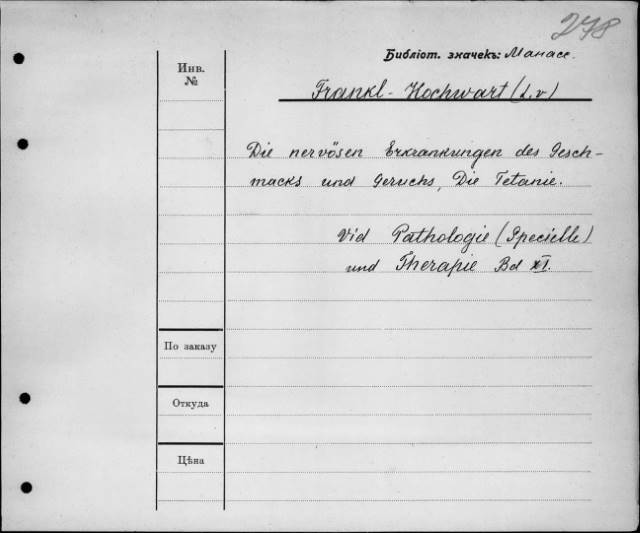 278
Библіот. значекъ: Манасс.
Инв.
№
Frankl-Hochwart (L.v)
Die nervösen Erkrankungen des Gesch-
macks und Geruchs, Die Tetanie.
Vid Pathologie (Specielle)
und Therapie Bd XI.
По заказу
Откуда
Цѣна